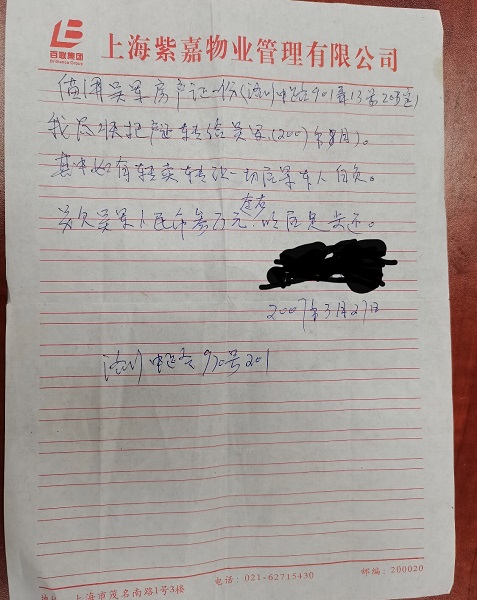 百联集团
Brilliance Group
上海紫嘉物业管理有限公司
借用吴军房产证一份(洛川中路901弄13号203室)
我尽快把产证转给吴军(2007年8月)。
其中如有转卖转让一切后果本人自负。
另欠吴军人民币叁万元.左右
2007年3月27日
洛川中路970号201
地址:上海市茂名南路1号3楼
电话:021-62715430
邮编:200020